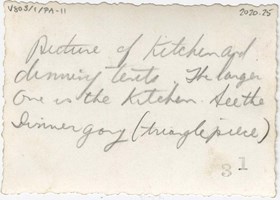 V803/1/PA-11
2020.75
Picture of Kitchen and
dinning tents. The larger
One is the Kitchen. See the
Dinner gong (triangle piece)
31